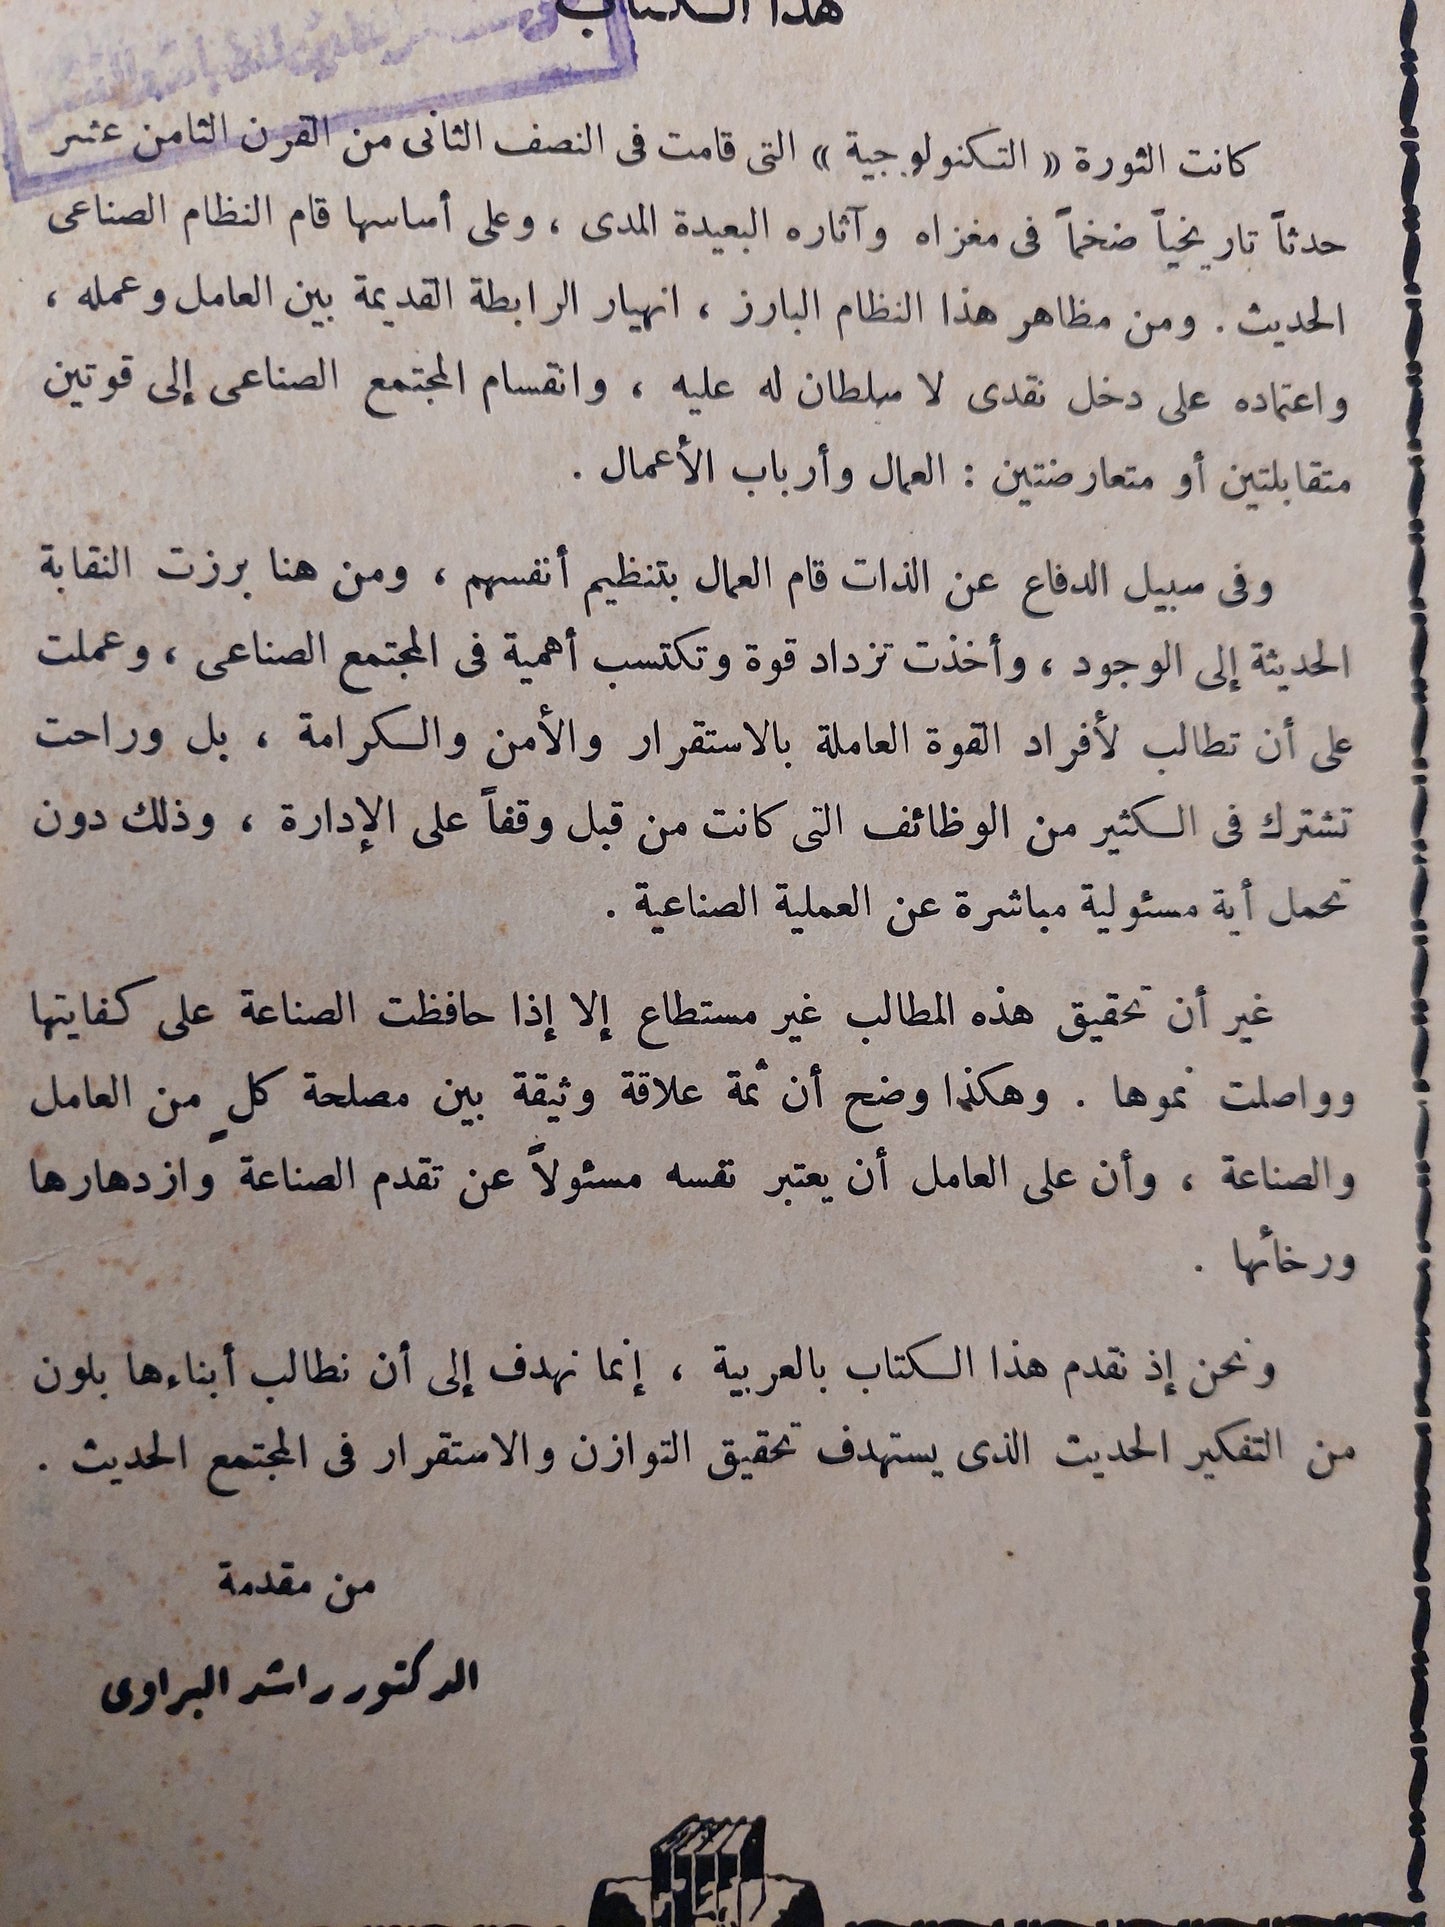 هذا الكتاب
كانت الثورة « التكنولوجية » التى قامت فى النصف الثانى من القرن الثامن عشر
حدثاً تاريخياً ضخماً فى مغزاه وآثاره البعيدة المدى ، وعلى أساسها قام النظام الصناعى
الحديث . ومن مظاهر هذا النظام البارز ، انهيار الرابطة القديمة بين العامل وعمله ،
واعتماده على دخل نقدى لا سلطان له عليه ، وانقسام المجتمع الصناعى إلى قوتين
متقابلتين أو متعارضتين : العمال وأرباب الأعمال .
وفى سبيل الدفاع عن الذات قام العمال بتنظيم أنفسهم ، ومن هنا برزت النقابة
الحديثة إلى الوجود ، وأخذت تزداد قوة وتكتسب أهمية فى المجتمع الصناعى ، وعملت
على أن تطالب لأفراد القوة العاملة بالاستقرار والأمن والكرامة ، بل وراحت
تشترك فى الكثير من الوظائف التى كانت من قبل وقفاً على الإدارة ، وذلك دون
تحمل أية مسئولية مباشرة عن العملية الصناعية .
غير أن تحقيق هذه المطالب غير مستطاع إلا إذا حافظت الصناعة على كفايتها
وواصلت نموها . وهكذا وضح أن ثمة علاقة وثيقة بين مصلحة كلٍ من العامل
والصناعة ، وأن على العامل أن يعتبر نفسه مسئولاً عن تقدم الصناعة وازدهارها
ورخائها .
ونحن إذ نقدم هذا الكتاب بالعربية ، إنما نهدف إلى أن نطالب أبناءها بلون
من التفكير الحديث الذى يستهدف تحقيق التوازن والاستقرار فى المجتمع الحديث .
من مقدمة
الدكتور راشد البراوى